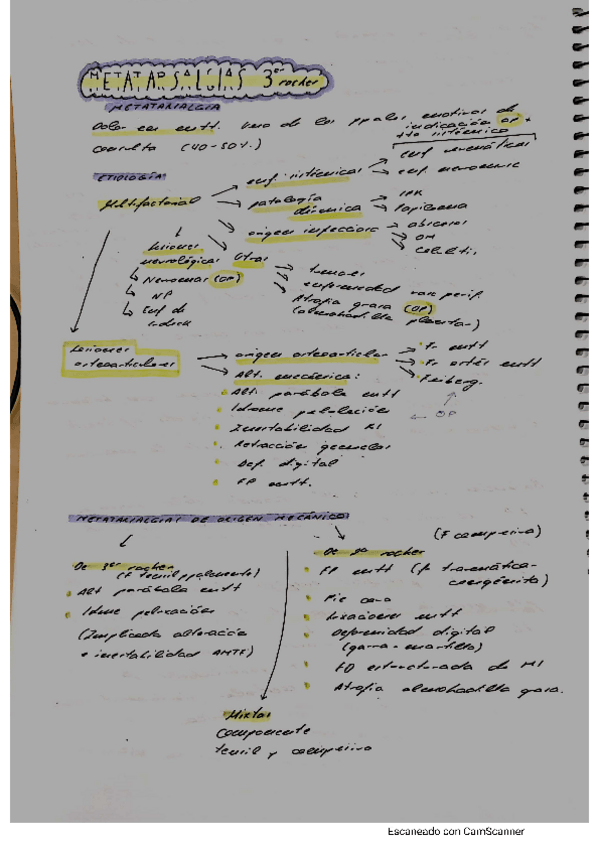 METATARSALGIAS 3er rocker
METATARSALGIA
Dolor en mtt. Uno de los ppales motivos de
consulta (40-50%.)
indicación OP +
tto sistémico
ETIOLOGÍA
Multifactorial
enf. sistémicas
enf. reumáticas
patología dérmica
IPK
Papiloma
origen infeccioso
abscesos
OM
Celulitis
Lesiones neurológicas
Neuromas (OP)
NP
Enf de
Otras
tumores
enfermedad vasc perif.
Atrofia grasa (OP)
(almohadilla plantar)
Lesiones
osteoarticulares
origen osteoarticular
Fr mtt
Freiberg.
Alt. mecánica:
Alt. parábola mtt
OP
Inestabilidad R1
Retracción gemelos
Def. digital
FP mtt.
METATARSALGIAS DE ORIGEN MECÁNICO
De 3er rocker
(F tensil ppalmente)
Alt parábola mtt
(Implicada alteración
e inestabilidad AMTF)
De 2º rocker
(F compresiva)
FP mtt (p traumática-
congénita)
Pie cavo
Luxaciones mtt
Deformidad digital
(garra-martillo)
FD estructurada de M1
Atrofia almohadilla grasa.
Mixtas
Componente
tensil y compresivo
Escaneado con CamScanner